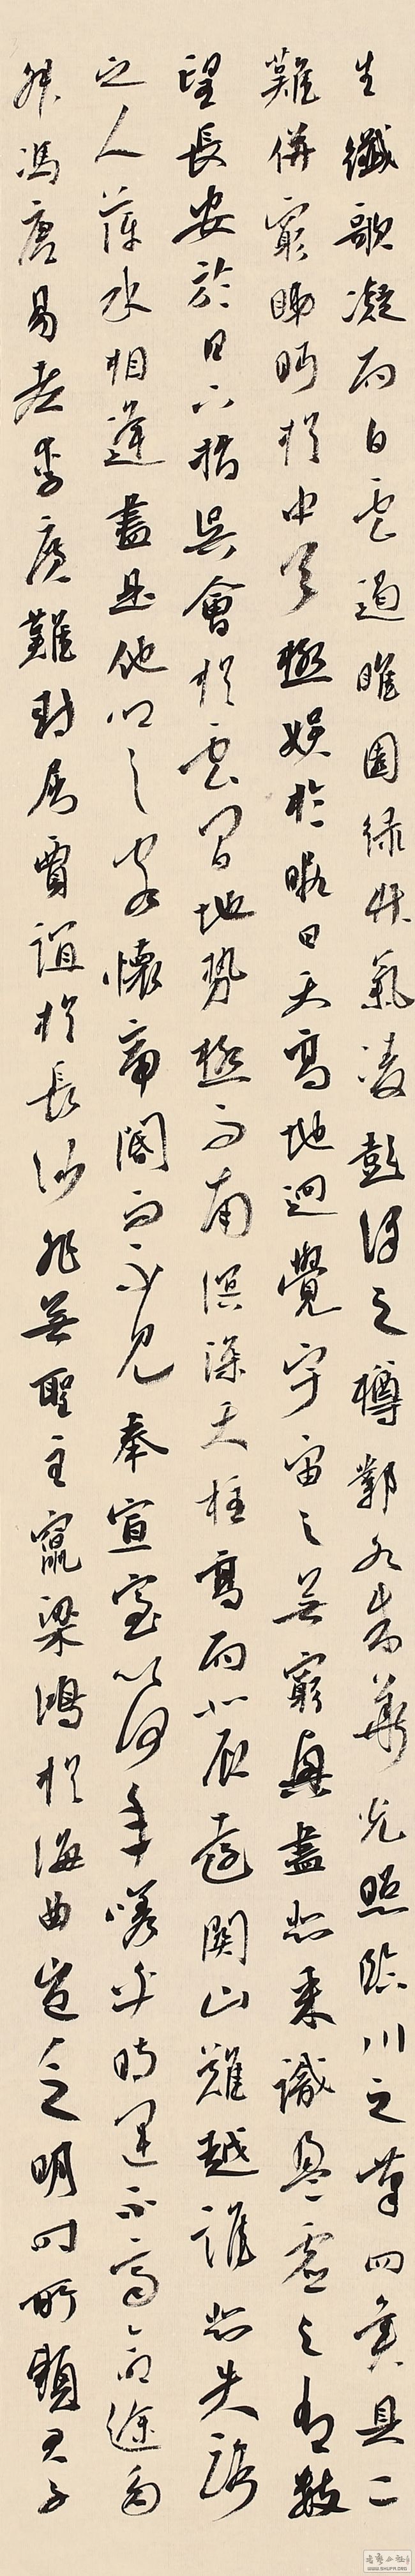 生纖歌凝而白雲遏睢園緑竹氣凌彭澤之樽鄴水朱華光照臨川之筆四美具二
難併窮睇眄於中天極娛於暇日天高地迥覺宇宙之無窮興盡悲來識盈虛之有數
望長安於日下指吳會於雲間地勢極而南溟深天柱高而北辰遠關山難越誰悲失路
之人萍水相逢盡是他鄉之客懷帝閽而不見奉宣室以何年嗟乎時運不齊命途多
舛馮唐易老李廣難封屈賈誼於長沙非無聖主竄梁鴻於海曲豈乏明時所賴君子
WWW.SHUFA.ORG